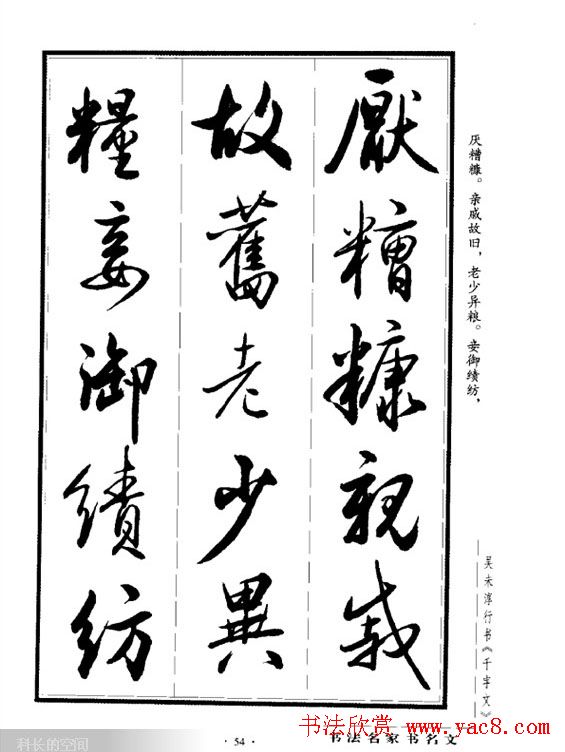 厭糟糠親戚
故舊老少異
糧妾御績紡
厌糟糠。亲戚故旧，老少异粮。妾御绩纺，
吴未淳行书《千字文》
·54·
书法名家书名文
书法欣赏 www.yac8.com
科长的空间